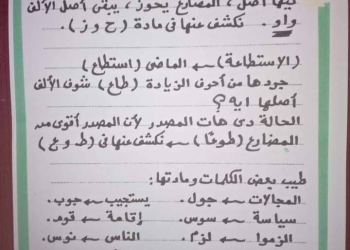 فيها أصل ، المضارع يحوز ، يبقى أصل الألف
واو . نكشف عنها في مادة ( ح و ز ) .
( الإستطاعة ) ← الماضى ( استطاع )
جردها من أحرف الزيادة ( طاع ) شوف الألف
أصلها ايه ؟
الحالة دى هات المصدر لأن المصدر أقوى من
المضارع ( طوعًا ) ← نكشف عنها في ( ط - و - ع )
طيب بعض الكلمات ومادتها :
المجالات ← جول . يستجيب ← جوب .
سياسة ← سوس . إقامة ← قوم .
الزموا ← لزم . الناس ← نوس .